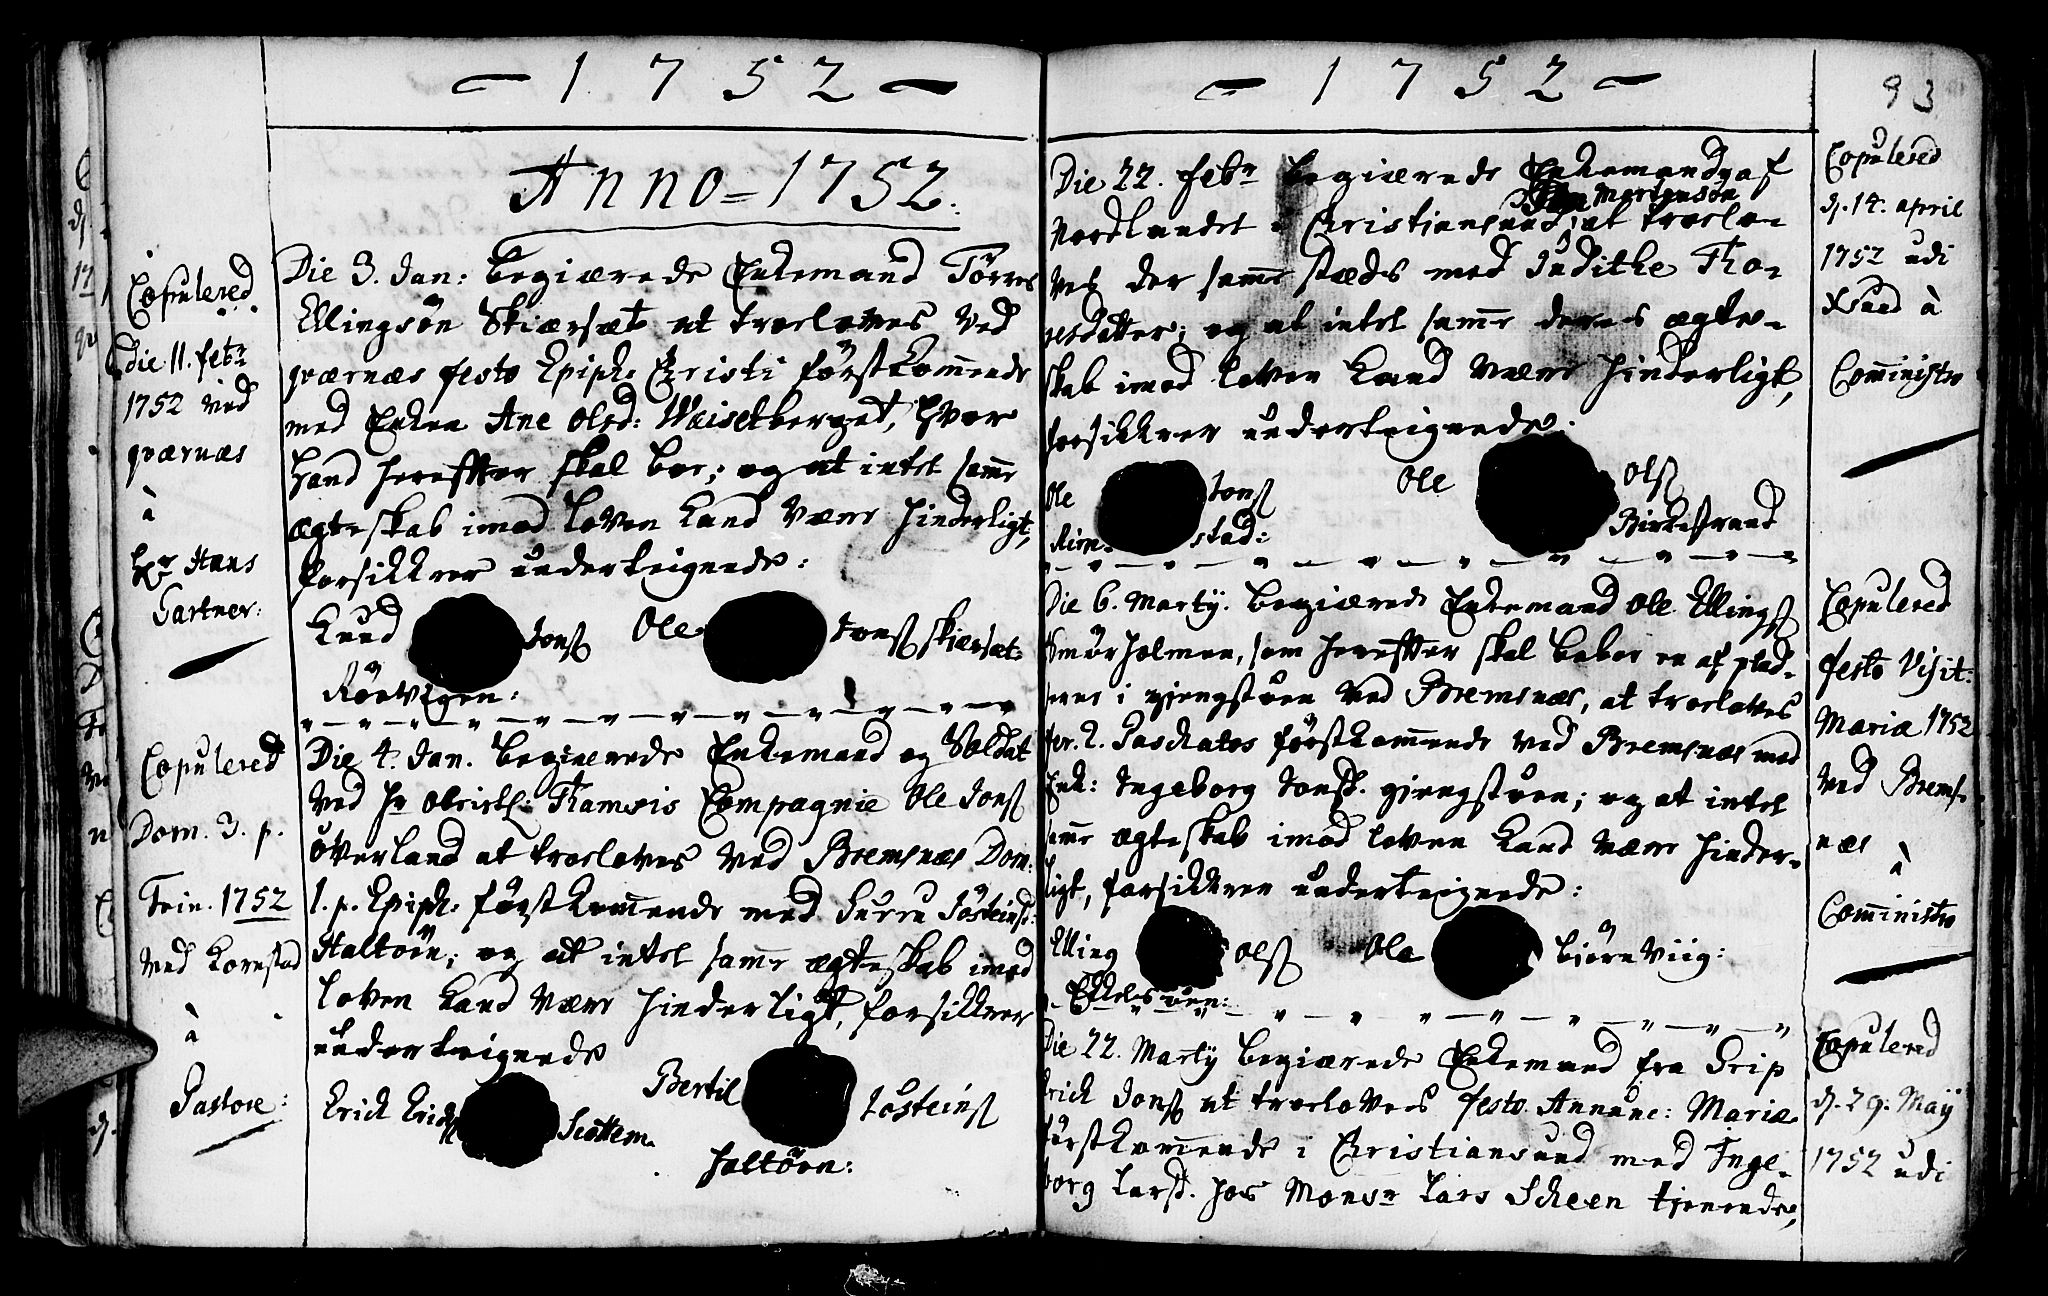 1752
Anno = 1752.
Copulered
die 11. febr
1752 ved
qværnæs
à
Hr Hans
Gartner:
Die 3. Jan: begiærede Enkemand Törres
Ellingsön Skiærsæt at troeloves ved
qværnæs festo Epiph. Christi förstkommende
med Enken Ane Olsd: Waisetberget, hvor
hand hereffter skal boe; og at intet samme
ægteskab imod loven kand være hinderligt,
forsikkrer underteignede:
Knud Jonss Ole Jonss Skiærsæt:
Rösvigen:
Copulered
Dom. 3. p.
Trin. 1752
ved Kornstad
à
Pastore:
Die 4. Jan. begiærede Enkemand og Soldat
ved Hr Obristl: Compagnie Ole Jonss
överland at troeloves ved Bremsnæs Dom:
1. p. Epiph. förstkommende med Jösteinsd:
Haltöen; og at intet samme ægteskab imod
loven kand være hinderligt, forsikkrer
underteignede
Erich Erichss Bertil Jösteinss
Haltöen:
1752
93
Die 22. febr begiærede Enkemand af
Mortensön
Nordlandet i Christiansund, at troelo-
ves der samme stæds med Judithe Tho-
resdatter; og at intet samme deres ægte-
skab imod loven kand være hinderligt,
forsikkrer underteignede.
Ole Jonss Ole Olss
stad: Birkestrand
Copulered
d. 14. april
1752 udi
Xsund à
Comministro
Die 6. Martij. begiærede Enkemand Ole Ellingss
Smörholmen, som hereffter skal beboe en af plad-
serne i gjengstöen ved Bremsnæs, at troeloves
fer. 2. Paschatos förstkommende ved Bremsnæs med
Enk: Ingeborg Jonsd. gjengstöen; og at intet
samme ægteskab imod loven kand være hinder-
ligt, forsikkrer underteignede:
Elling Olss Ole björnviig:
Copulered
festo Visit:
Mariæ 1752
ved Brems-
næs
à
Comministro
Die 22. Martij begiærede Enkemand fra Grip
Erich Jonss at troeloves festo Annunc: Mariæ
förstkommende i Christiansund med Inge-
borg Larsd. hos Monsr Lars Scheen tjenende,
Copulered
d. 29. Maij
1752 udi